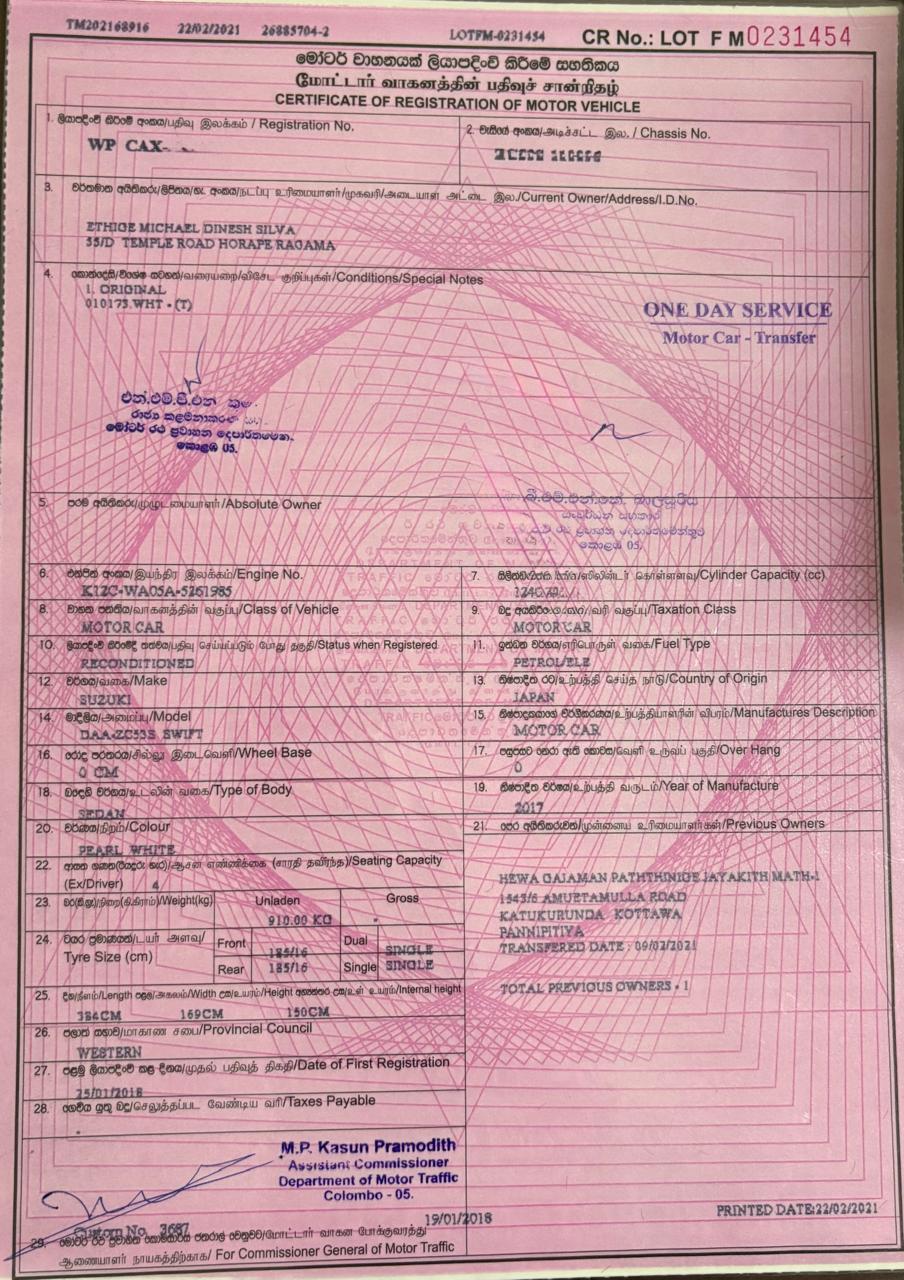 TM202168916 22/02/2021 26885704-2 LOTFM-0231454 CR No.: LOT F M0231454
මෝටර් වාහනයක් ලියාපදිංචි කිරීමේ සහතිකය
மோட்டார் வாகனத்தின் பதிவுச் சான்றிதழ்
CERTIFICATE OF REGISTRATION OF MOTOR VEHICLE
1. ලියාපදිංචි කිරීමේ අංකය/பதிவு இலக்கம் / Registration No.
WP CAX-
2. වැසියේ අංකය/அடிச்சட்ட இல. / Chassis No.
3. වර්තමාන අයිතිකරු/ලිපිනය/හැ. අංකය/நடப்பு உரிமையாளர்/முகவரி/அடையாள அட்டை இல./Current Owner/Address/I.D.No.
ETHIGE MICHAEL DINESH SILVA
35/D TEMPLE ROAD HORAPE RAGAMA
4. කොන්දේසි/විශේෂ සටහන්/வரையறை/விசேட குறிப்புகள்/Conditions/Special Notes
1. ORIGINAL
010173.WHT - (T)
ONE DAY SERVICE
Motor Car - Transfer
එන්.එම්.පී.එන්
රාජ්‍ය කළමනාකරණ
මෝටර් රථ ප්‍රවාහන දෙපාර්තමේන්තුව
කොළඹ 05.
කොළඹ 05.
5. පරම අයිතිකරු/முழுடமையாளர்/Absolute Owner
6. එන්ජින් අංකය/இயந்திர இலக்கம்/Engine No.
K12C-WA05A-5261985
7. சிலிண்டர் கொள்ளளவு/Cylinder Capacity (cc)
8. වාහන පන්තිය/வாகனத்தின் வகுப்பு/Class of Vehicle
MOTOR CAR
9. வரி வகுப்பு/Taxation Class
MOTOR CAR
10. ලියාපදිංචි කිරීමේදී තත්වය/பதிவு செய்யப்படும் போது தகுதி/Status when Registered
RECONDITIONED
11. ඉන්ධන වර්ගය/எரிபொருள் வகை/Fuel Type
PETROL/ELE
12. වර්ගය/வகை/Make
SUZUKI
13. නිෂ්පාදිත රට/உற்பத்தி செய்த நாடு/Country of Origin
JAPAN
14. මාදිලිය/அமைப்பு/Model
DAA-ZC53S SWIFT
15. உற்பத்தியாளரின் விபரம்/Manufactures Description
MOTOR CAR
16. රෝද පරතරය/சில்லு இடைவெளி/Wheel Base
0 CM
17. வெளி உருவப் பகுதி/Over Hang
0
18. බඳෙහි වර්ගය/உடலின் வகை/Type of Body
SEDAN
19. නිෂ්පාදිත වර්ෂය/உற்பத்தி வருடம்/Year of Manufacture
2017
20. වර්ණය/நிறம்/Colour
PEARL WHITE
21. පෙර අයිතිකරුවන්/முன்னைய உரிமையாளர்கள்/Previous Owners
22. ஆசன எண்ணிக்கை (சாரதி தவிர்ந்த)/Seating Capacity
(Ex/Driver) 4
HEWA GAJAMAN PATHTHINIGE JAYAKITH MATH-1
1543/6 AMUETAMULLA ROAD
KATUKURUNDA KOTTAWA
PANNIPITIYA
TRANSFERED DATE : 09/02/2021
TOTAL PREVIOUS OWNERS - 1
23. බර(කි.ග්‍රෑ)/நிறை(கி.கிராம்)/Weight(kg) Unladen Gross
910.00 KG -
24. ටයර් ප්‍රමාණයන්/டயர் அளவு/
Tyre Size (cm)
Front 185/16 Dual SINGLE
Rear 185/16 Single SINGLE
25. දිග/நீளம்/Length පළල/அகலம்/Width උස/உயரம்/Height අභ්‍යන්තර උස/உள் உயரம்/Internal height
384CM 169CM 150CM
26. පලාත් සභාව/மாகாண சபை/Provincial Council
WESTERN
27. පළමු ලියාපදිංචි කළ දිනය/முதல் பதிவுத் திகதி/Date of First Registration
25/01/2018
28. ගෙවිය යුතු බදු/செலுத்தப்பட வேண்டிய வரி/Taxes Payable
-
M.P. Kasun Pramodith
Assistant Commissioner
Department of Motor Traffic
Colombo - 05.
19/01/2018
PRINTED DATE:22/02/2021
Custom No. 3687
29. மோட்டார் வாகன போக்குவரத்து
ஆணையாளர் நாயகத்திற்காக/ For Commissioner General of Motor Traffic